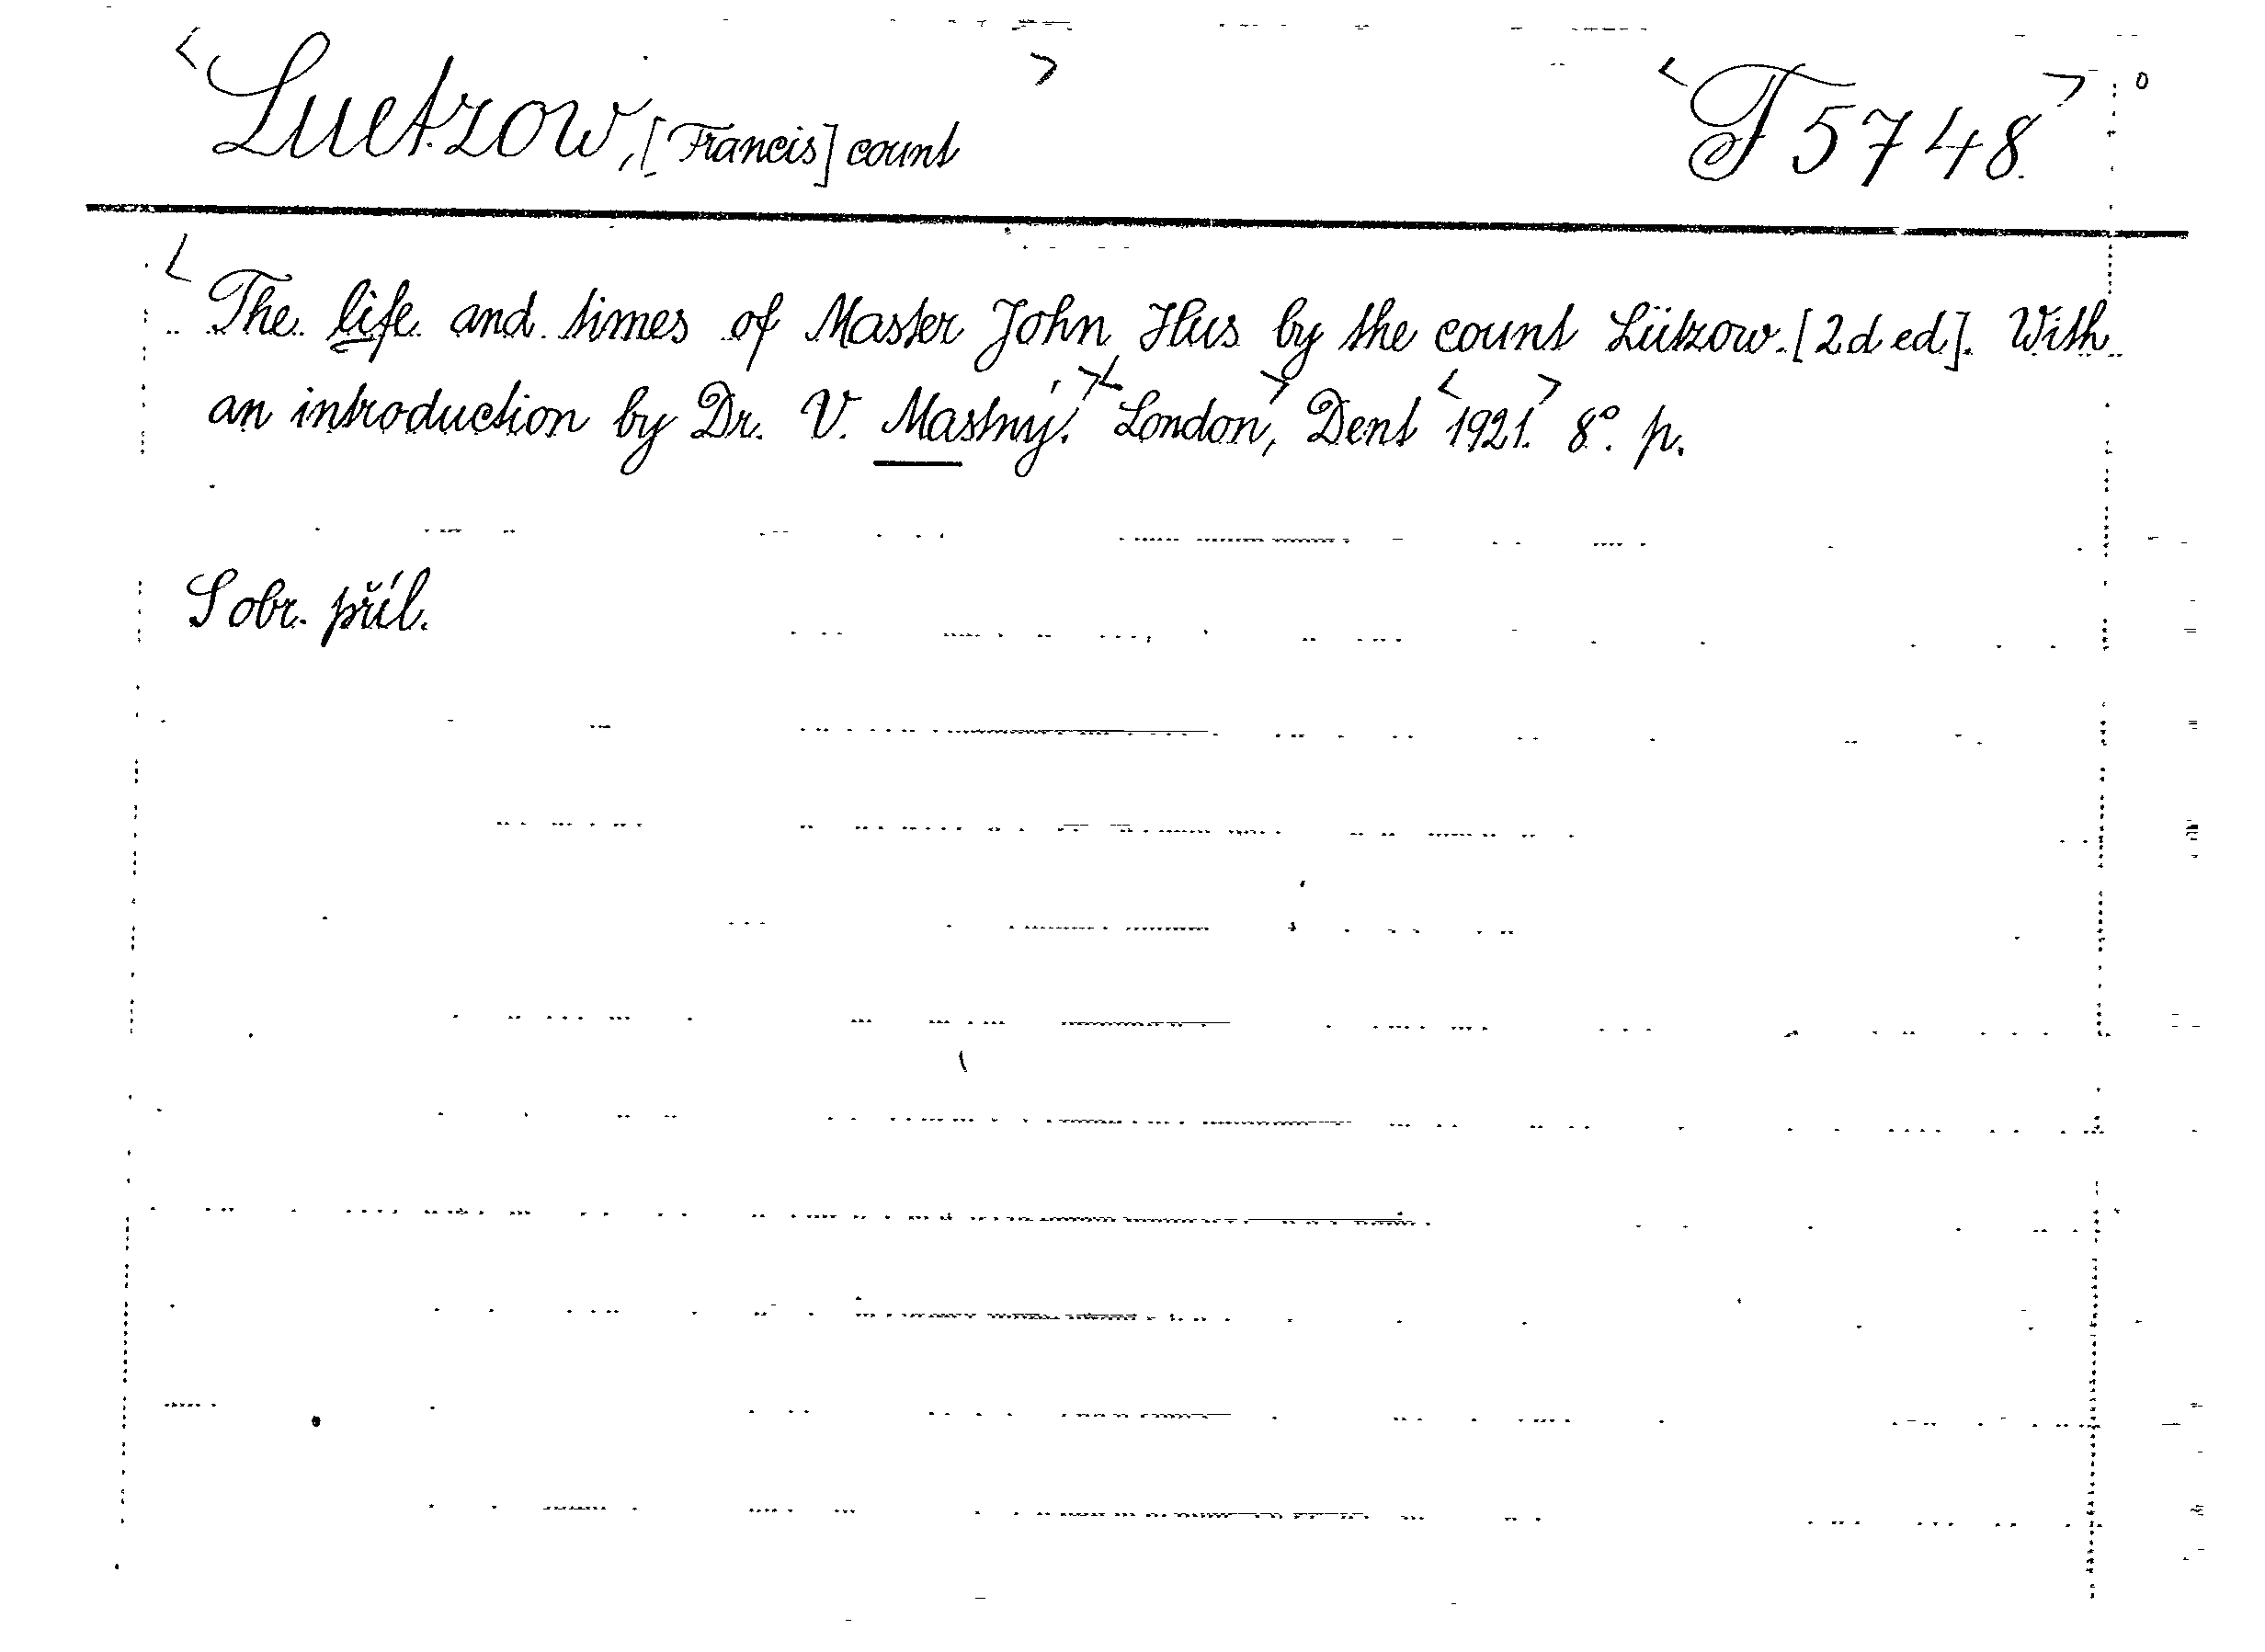 <Luetzow, [Francis] count> <T 5748.>
<The life and times of Master John Hus by the count Lützow. [2d ed]. With
an introduction by Dr. V. Mastný.><London>, Dent <1921.> 8°. p.
S obr. příl.